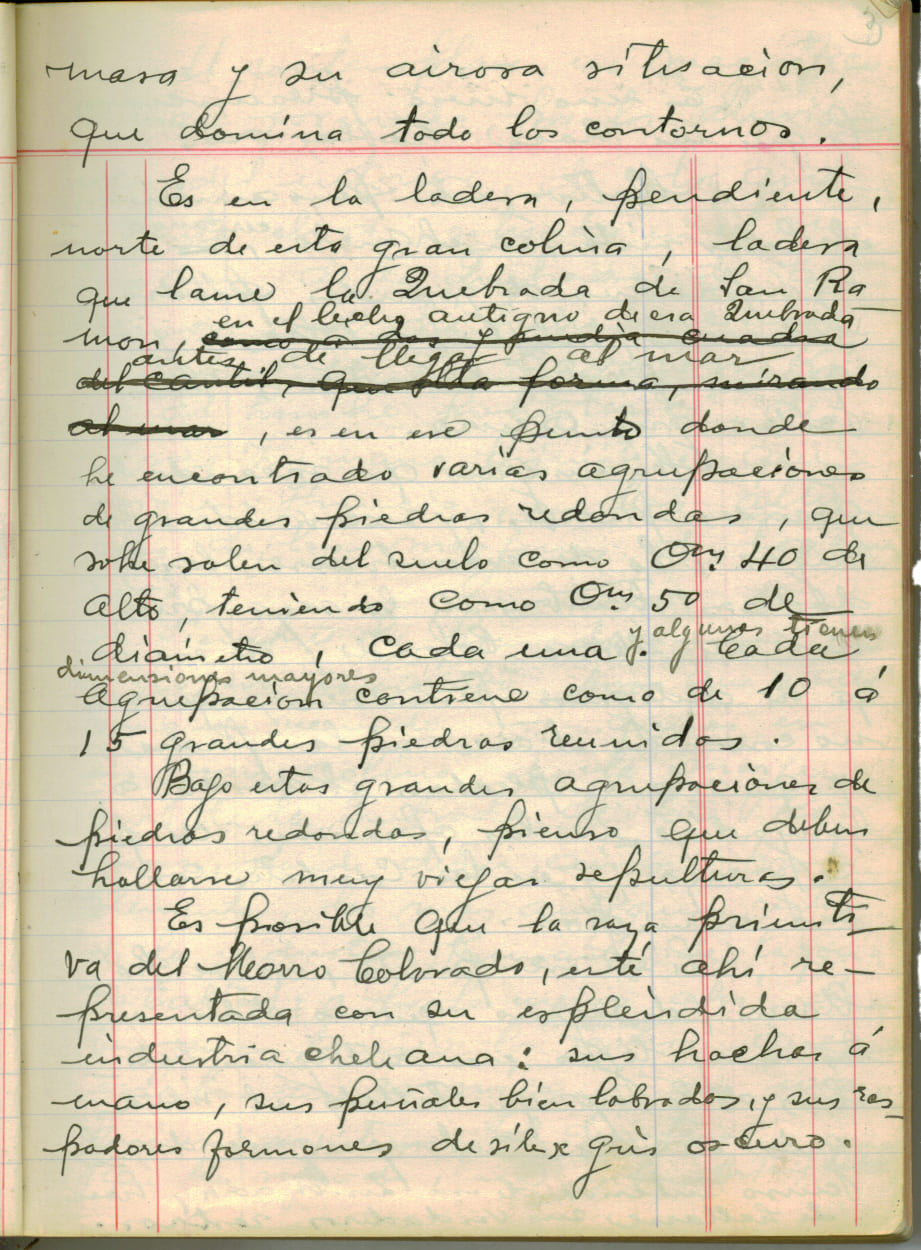 3
masa y su airosa situacion,
que domina todo los contornos.
Es en la ladera, pendiente,
norte de esta gran colina, ladera
que lame la Quebrada de San Ra
en el lecho antiguo de esa Quebrada
mon, como a dos y media cuadra
antes de llegar al mar
del cantil, que esta forma, mirando
al mar, es en ese punto donde
he encontrado varias agrupaciones
de grandes piedras redondas, que
sobresalen del suelo como 0m 40 de
alto, teniendo como 0m 50 de
y algunas tienen
diámetro, cada una. Cada
dimensiones mayores
agrupacion contiene como de 10 á
15 grandes piedras reunidas.
Bajo estas grandes agrupaciones de
piedras redondas, pienso que deben
hallarse muy viejas sepulturas.
Es posible que la raza primiti
va del Morro Colorado, esté ahí re-
presentada con su espléndida
industria cheleana: sus hachas á
mano, sus puñales bien labrados, y sus ras-
padores formones de sílex gris oscuro.